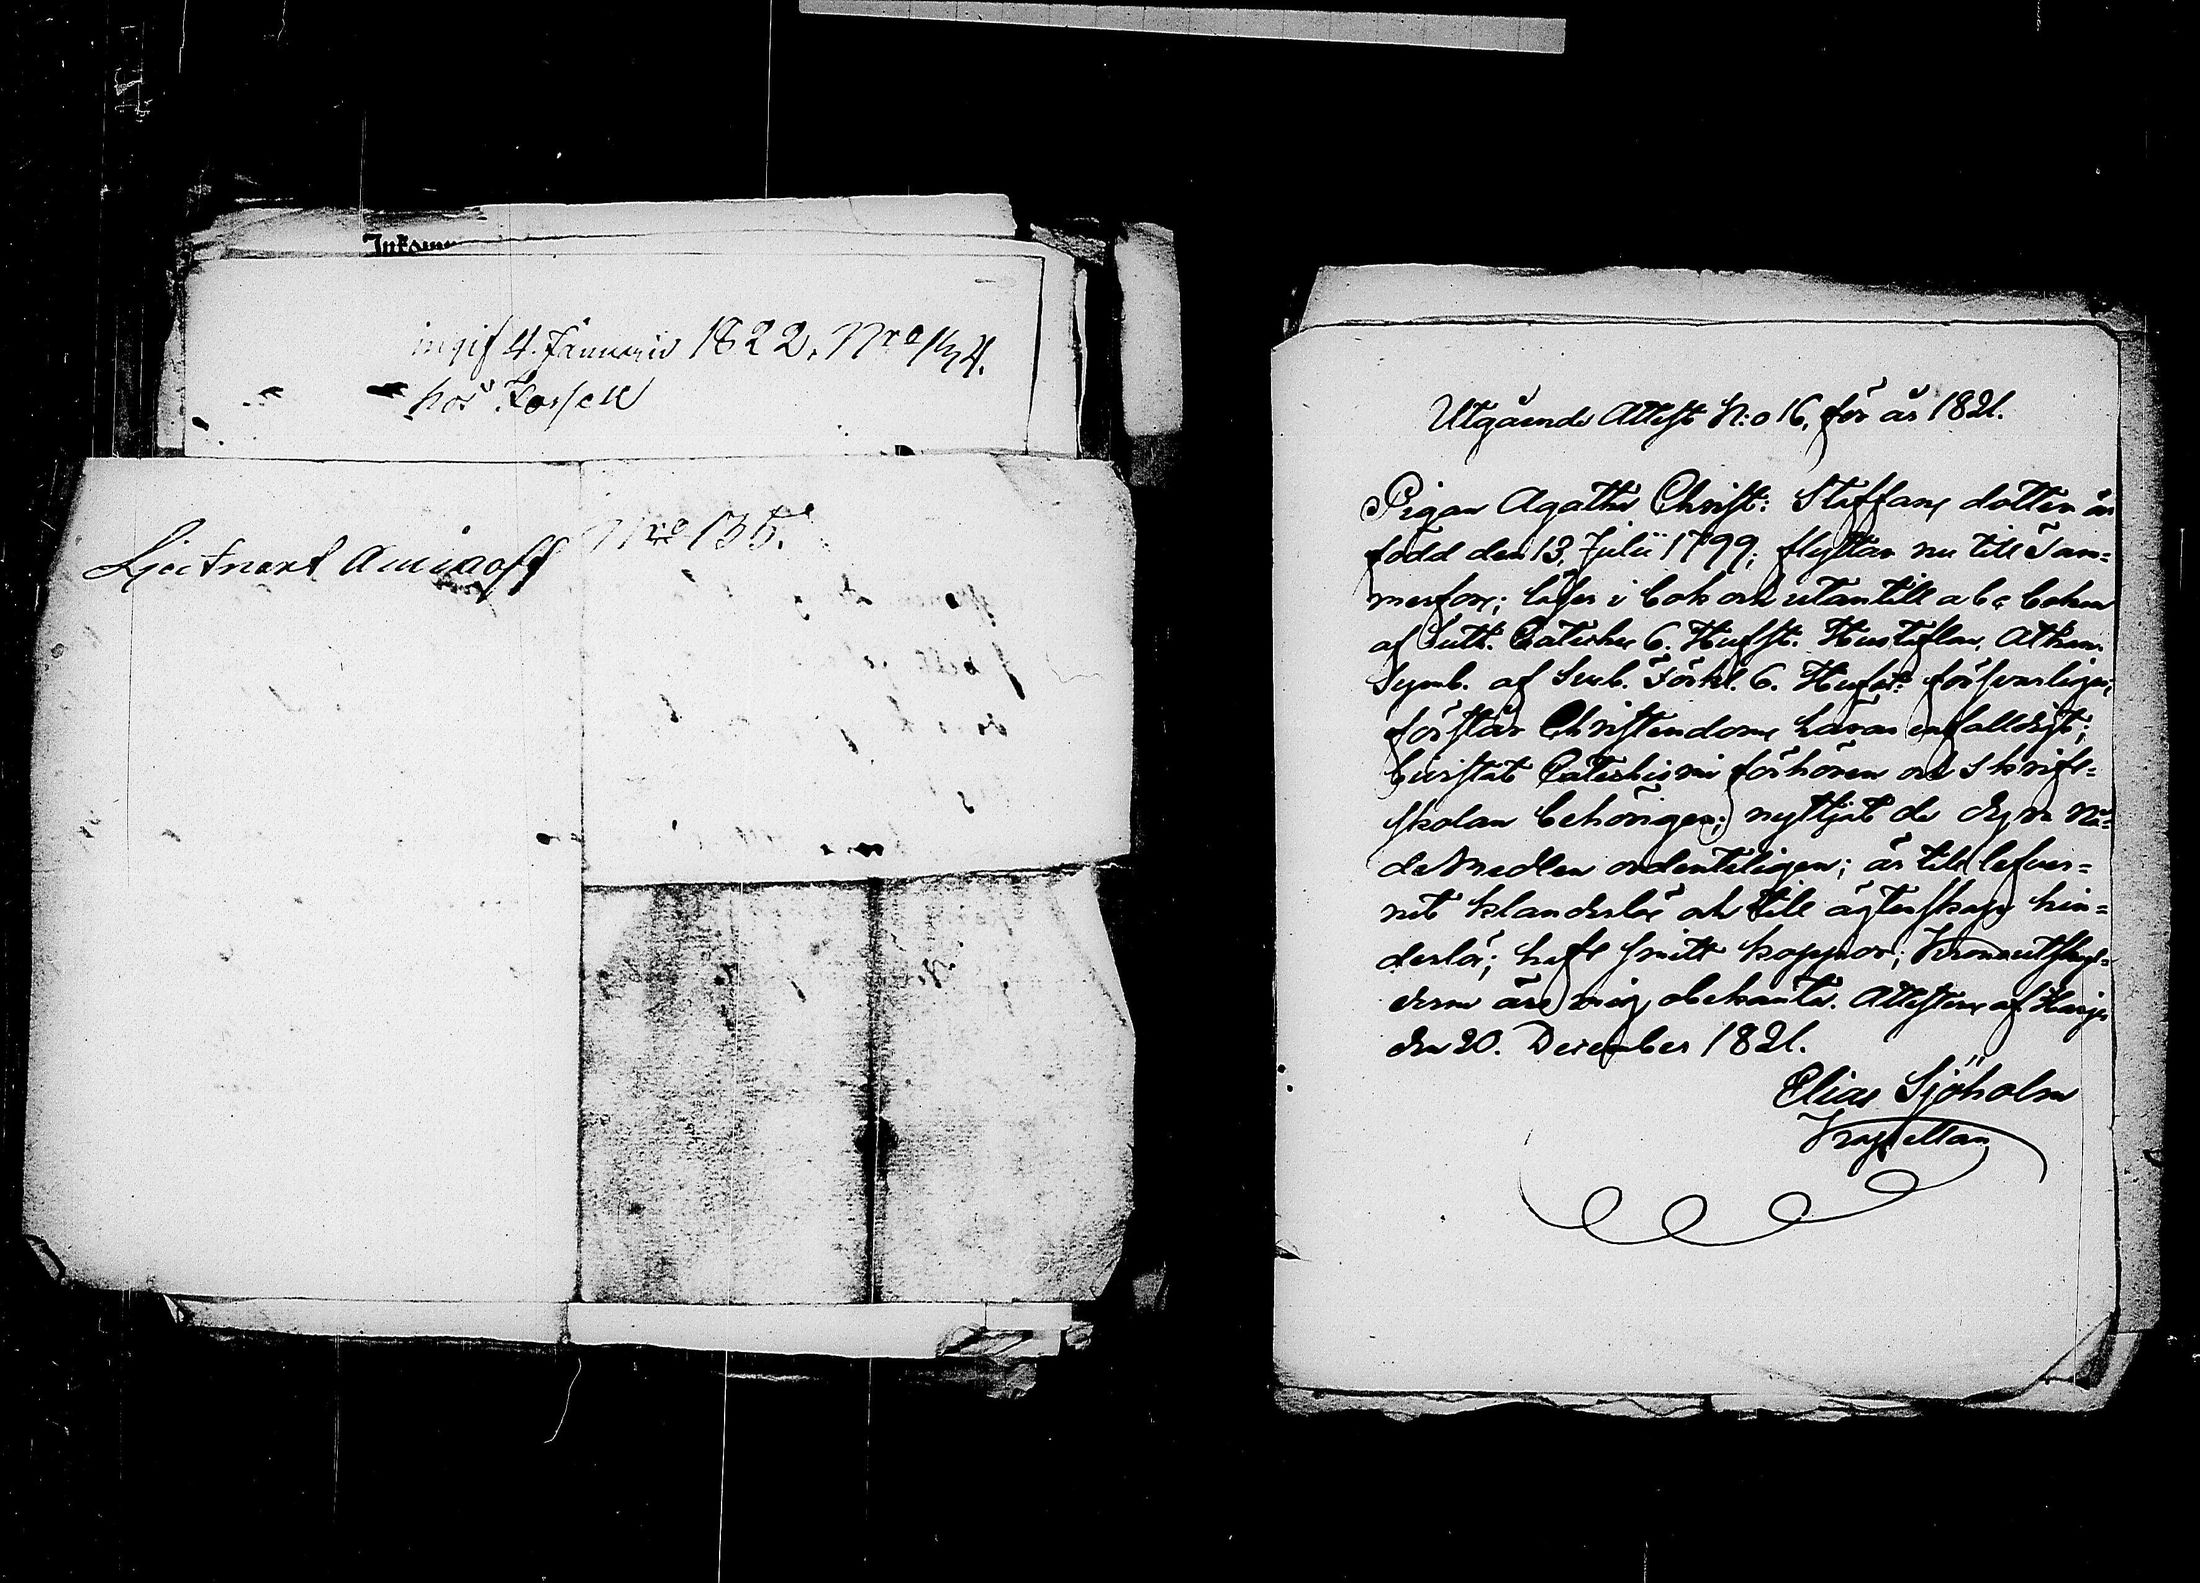 Inkom
ingif 4. Januarii 1822. Nro 134.
hos Forsell
Nro 135.
Lieutnant Aminoff
Utgående Attest N:o 16, för år 1821.
Pigan Agatha Christ: Staffans dotter är
född den 13. Julii 1799; flyttar nu till Tam-
merfors; läser i bok och utantill abc boken
af Luth. Cateches 6. Hufst. Hustaflan, Athan.
Symb. af Sveb. Förkl. 6. Hufst: försvarligen,
förstår Christendoms läran enfalldigt;
bivistat Catechismi förhören och Skrift-
skolan behörigen; nyttjat de dyra Nå-
de Medlen ordenteligen; är till lefver-
net klanderlös och till ägtenskap hin-
derlös; haft smitt koppor; Kronoutskyl-
derna äro mig obekanta. Attesteras af
den 20. December 1821.
Elias Sjöholm
Kapellan